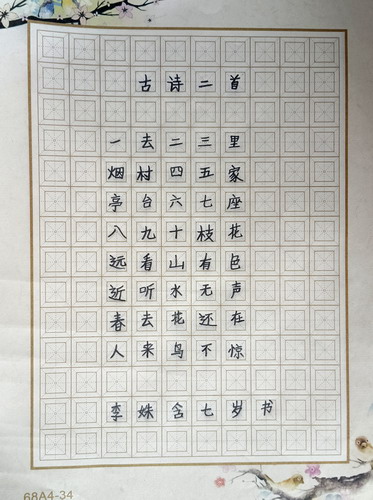 古诗二首
一去二三里
烟村四五家
亭台六七座
八九十枝花
远看山有色
近听水无声
春去花还在
人来鸟不惊
李姝含七岁书
68A4-34